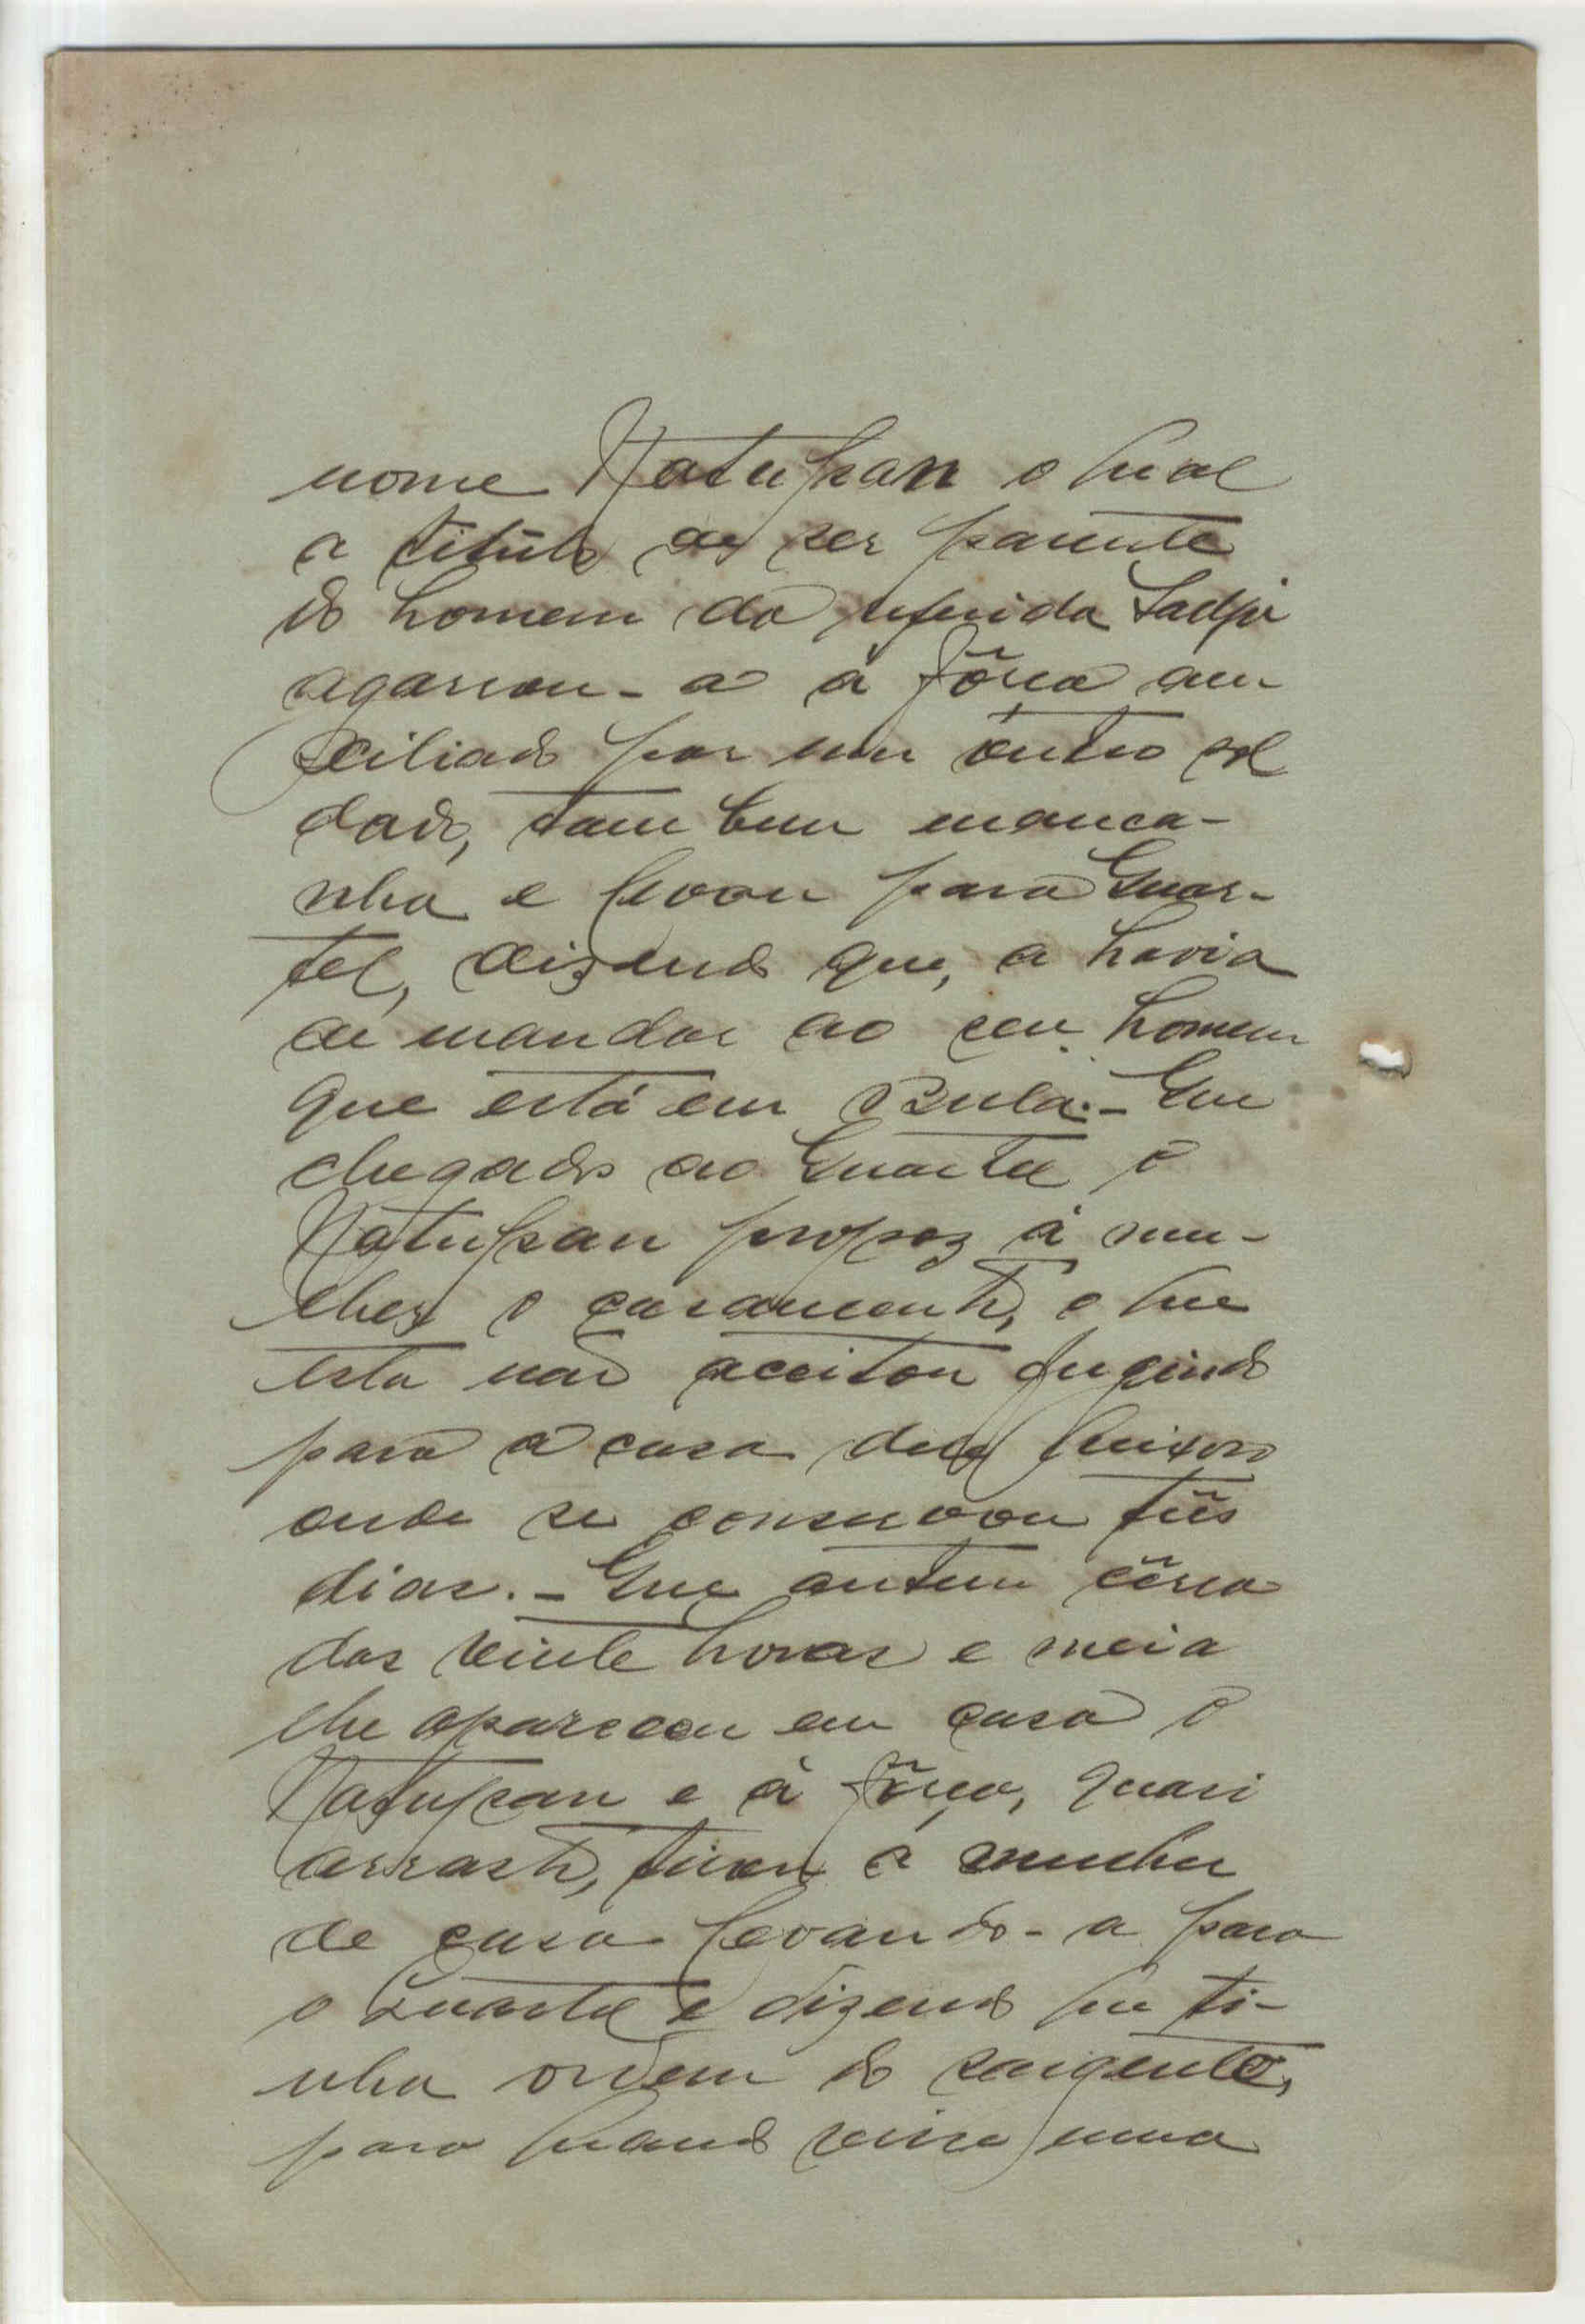 nome Natupan o qual
a titulo de ser parente
do homem da referida Sadpi
agarrou-a à fôrça au-
xiliado por um outro sol
dado, tam bem manca-
nha e levou para Quar-
tel, dizendo que, a havia
de mandar ao seu homem
que está em Bula.- Que
chegado ao Quartel o
Natupan propoz à mu-
lher o casamento, o que
esta não aceitou fugindo
para a casa dele queixoso
onde se conservou três
dias.- Que ontem cêrca
das vinte horas e meia
lhe apareceu em casa o
Natupan e à fôrça, quasi
arrasto, tirou a mulher
de casa levando-a para
o Quartel e dizendo que ti-
nha ordem do sargento,
para quando visse uma